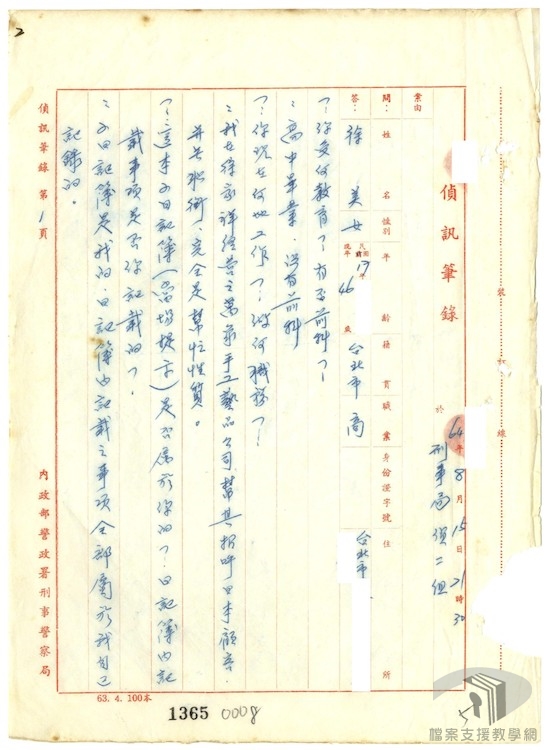 2
偵訊筆錄
裝 訂 線
於
64年8月15日21時30
刑事局偵二組
案由
問：姓名 性別 年齡 籍貫 職業 身份證字號 住所
答：徐 美 女 民國17年 現年46歲 台北市 商 台北市
你受何教育？有否前科？
高中畢業，沒有前科
你現在何地工作？做何職務？
我在徐家祥經營之萬 手工藝品公司幫其招呼日本顧客，
并無職銜，完全是幫忙性質。
這本子日記簿（當場提示）是否屬於你的？日記簿內記
載事項是否你記載的？
子日記簿是我的，日記簿內記載之事項全部屬於我自己
記錄的。
偵訊筆錄 第1頁
內政部警政署刑事警察局
63. 4. 100本
1365 0008
檔案支援教學網